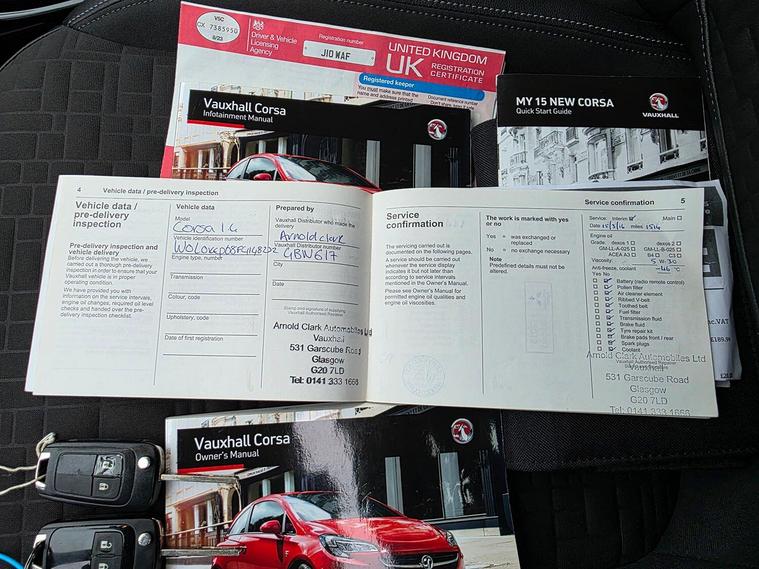 V5C
CX 7385950
8/23
Driver & Vehicle
Licensing
Agency
Registration number
J10 WAF
UNITED KINGDOM
UK REGISTRATION
CERTIFICATE
Registered keeper
You must make sure that the
name and address printed
Document reference number
Vauxhall Corsa
Infotainment Manual
MY 15 NEW CORSA
Quick Start Guide
VAUXHALL
4 Vehicle data / pre-delivery inspection
Vehicle data /
pre-delivery
inspection
Pre-delivery inspection and
vehicle delivery
Before delivering the vehicle, we
carried out a thorough pre-delivery
inspection in order to ensure that
your vehicle is in proper
operating condition.
We have provided you with
information on the service intervals,
engine oil changes, required oil level
checks and handed over the
pre-delivery inspection checklist.
Vehicle data
Model
Corsa 1.4
Vehicle identification number
Engine type, number
Transmission
Colour, code
Upholstery, code
Date of first registration
Prepared by
Vauxhall Distributor who made the
delivery
Arnold clark
Vauxhall Distributor number
GBW617
City
Date
Stamp and signature of supplying
Vauxhall Authorised Repairer
Arnold Clark Automobiles Ltd
Vauxhall
531 Garscube Road
Glasgow
G20 7LD
Tel: 0141 333 1668
Service confirmation 5
Service
confirmation
The servicing carried out is
documented on the following pages.
A service should be carried out
whenever the service display
indicates it but not later than
according to service intervals
mentioned in the Owner's Manual.
Please see Owner's Manual for
permitted engine oil qualities and
engine oil viscosities.
The work is marked with yes
or no
Yes = was exchanged or
replaced
No = no exchange necessary
Note
Predefined details must not be
altered.
Service: Interim Main
Date 15/3/16 miles 1514
Engine oil
Grade: dexos 1 dexos 2
GM-LL-A-025 GM-LL-B-025
ACEA A3 B4 C3
Viscosity: 5 W- 30
Anti-freeze, coolant -46 °C
Yes No
Battery (radio remote control)
Pollen filter
Air cleaner element
Ribbed V-belt
Toothed belt
Fuel filter
Transmission fluid
Brake fluid
Tyre repair kit
Brake pads front / rear
Spark plugs
Coolant
Arnold Clark Automobiles Ltd
Vauxhall
531 Garscube Road
Glasgow
G20 7LD
Tel: 0141 333 1668
Vauxhall Corsa
Owner's Manual